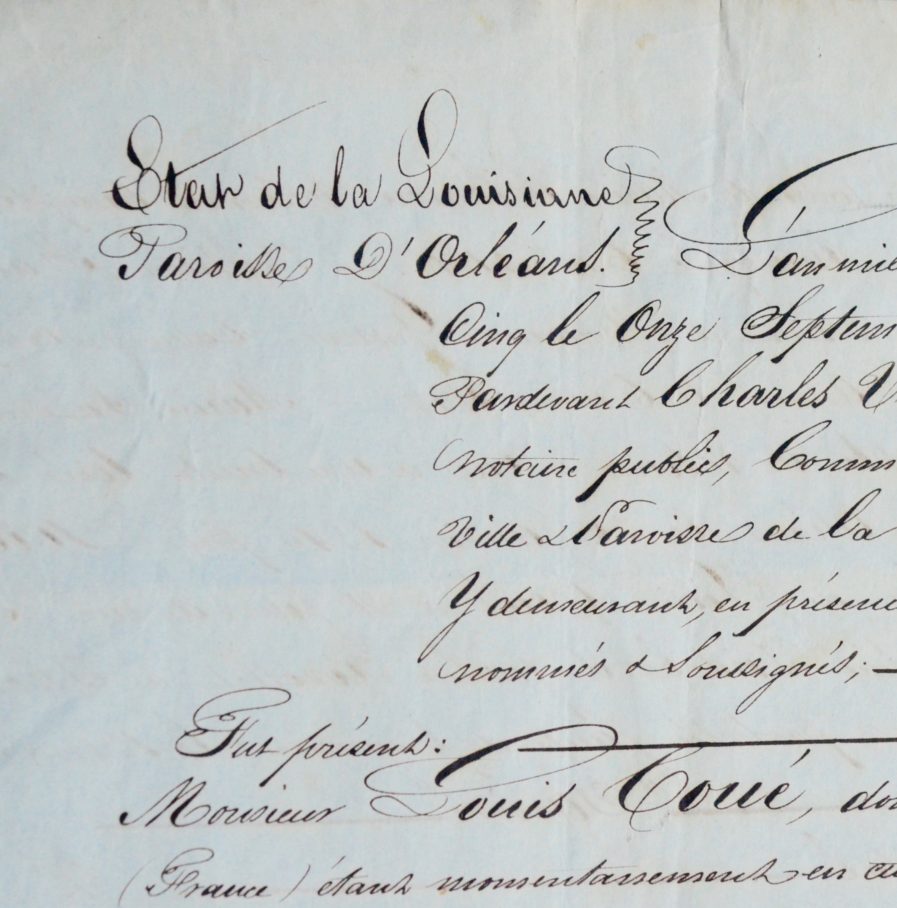 Etat de la Louisiane
Paroisse D'Orléans. L'an mil
Cinq le Onze Septem
Pardevant Charles V
notaire public, Comm
Ville & Paroisse de la
Y demeurant, en présen
nommés & Soussignés; —
Fut présent:
Monsieur Louis Toué, do
(France) étant momentanément en ce